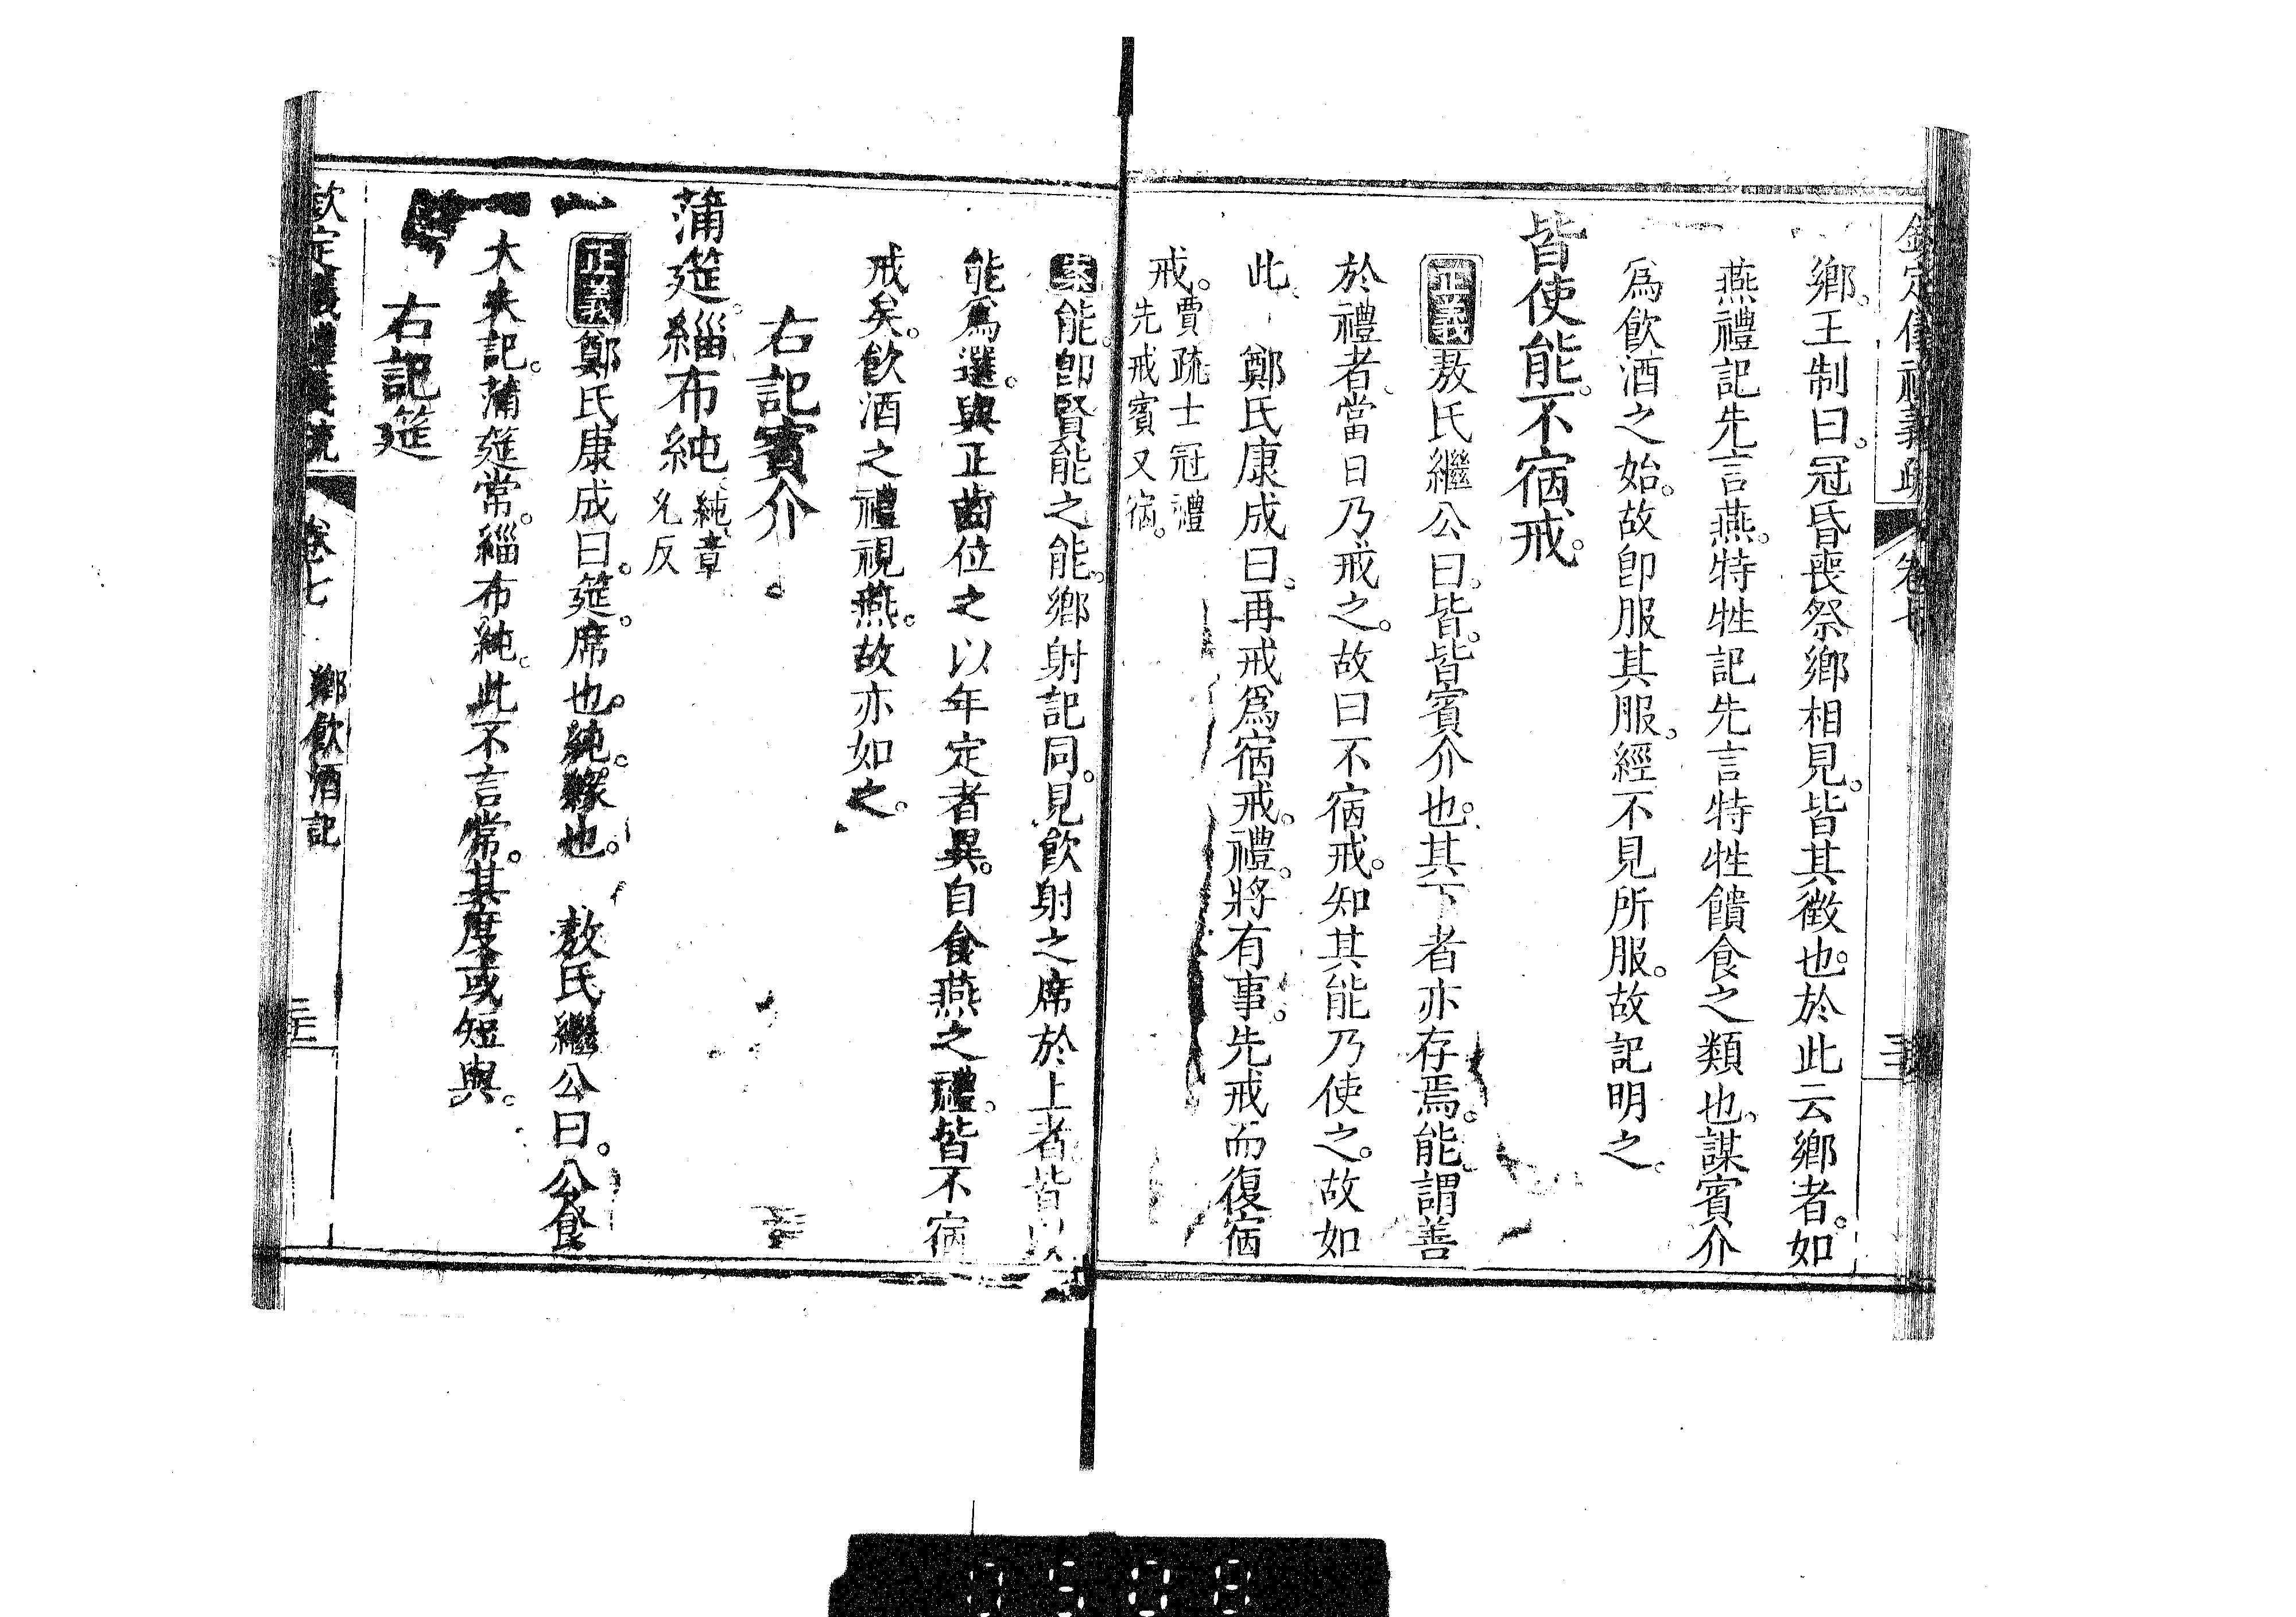 欽定儀禮義疏 卷七
鄉。王制曰。冠昏喪祭鄉相見。皆其徵也。於此云鄉者。如
燕禮記先言燕。特牲記先言特牲饋食之類也。謀賓介
爲飮酒之始。故卽服其服。經不見所服。故記明之。
皆使能。不宿戒。
正義敖氏繼公曰。皆。皆賓介也。其下者亦存焉。能。謂善
於禮者。當日乃戒之。故曰不宿戒。知其能乃使之。故如
此。 鄭氏康成曰。再戒爲宿戒。禮。將有事。先戒而復宿
戒。賈疏士冠禮
先戒賓又宿。
案能。卽賢能之能。鄉射記同。見飮射之席於上者。皆以
能爲選。與正齒位之以年定者異。自食燕之禮。皆不宿
戒矣。飮酒之禮視燕。故亦如之。
右記賓介
蒲筵。緇布純純章
允反
正義鄭氏康成曰。筵。席也。純。緣也。 敖氏繼公曰。公食
大夫記。蒲筵常。緇布純。此不言常。其度或短與。
右記筵
欽定儀禮義疏 卷七 鄉飮酒記